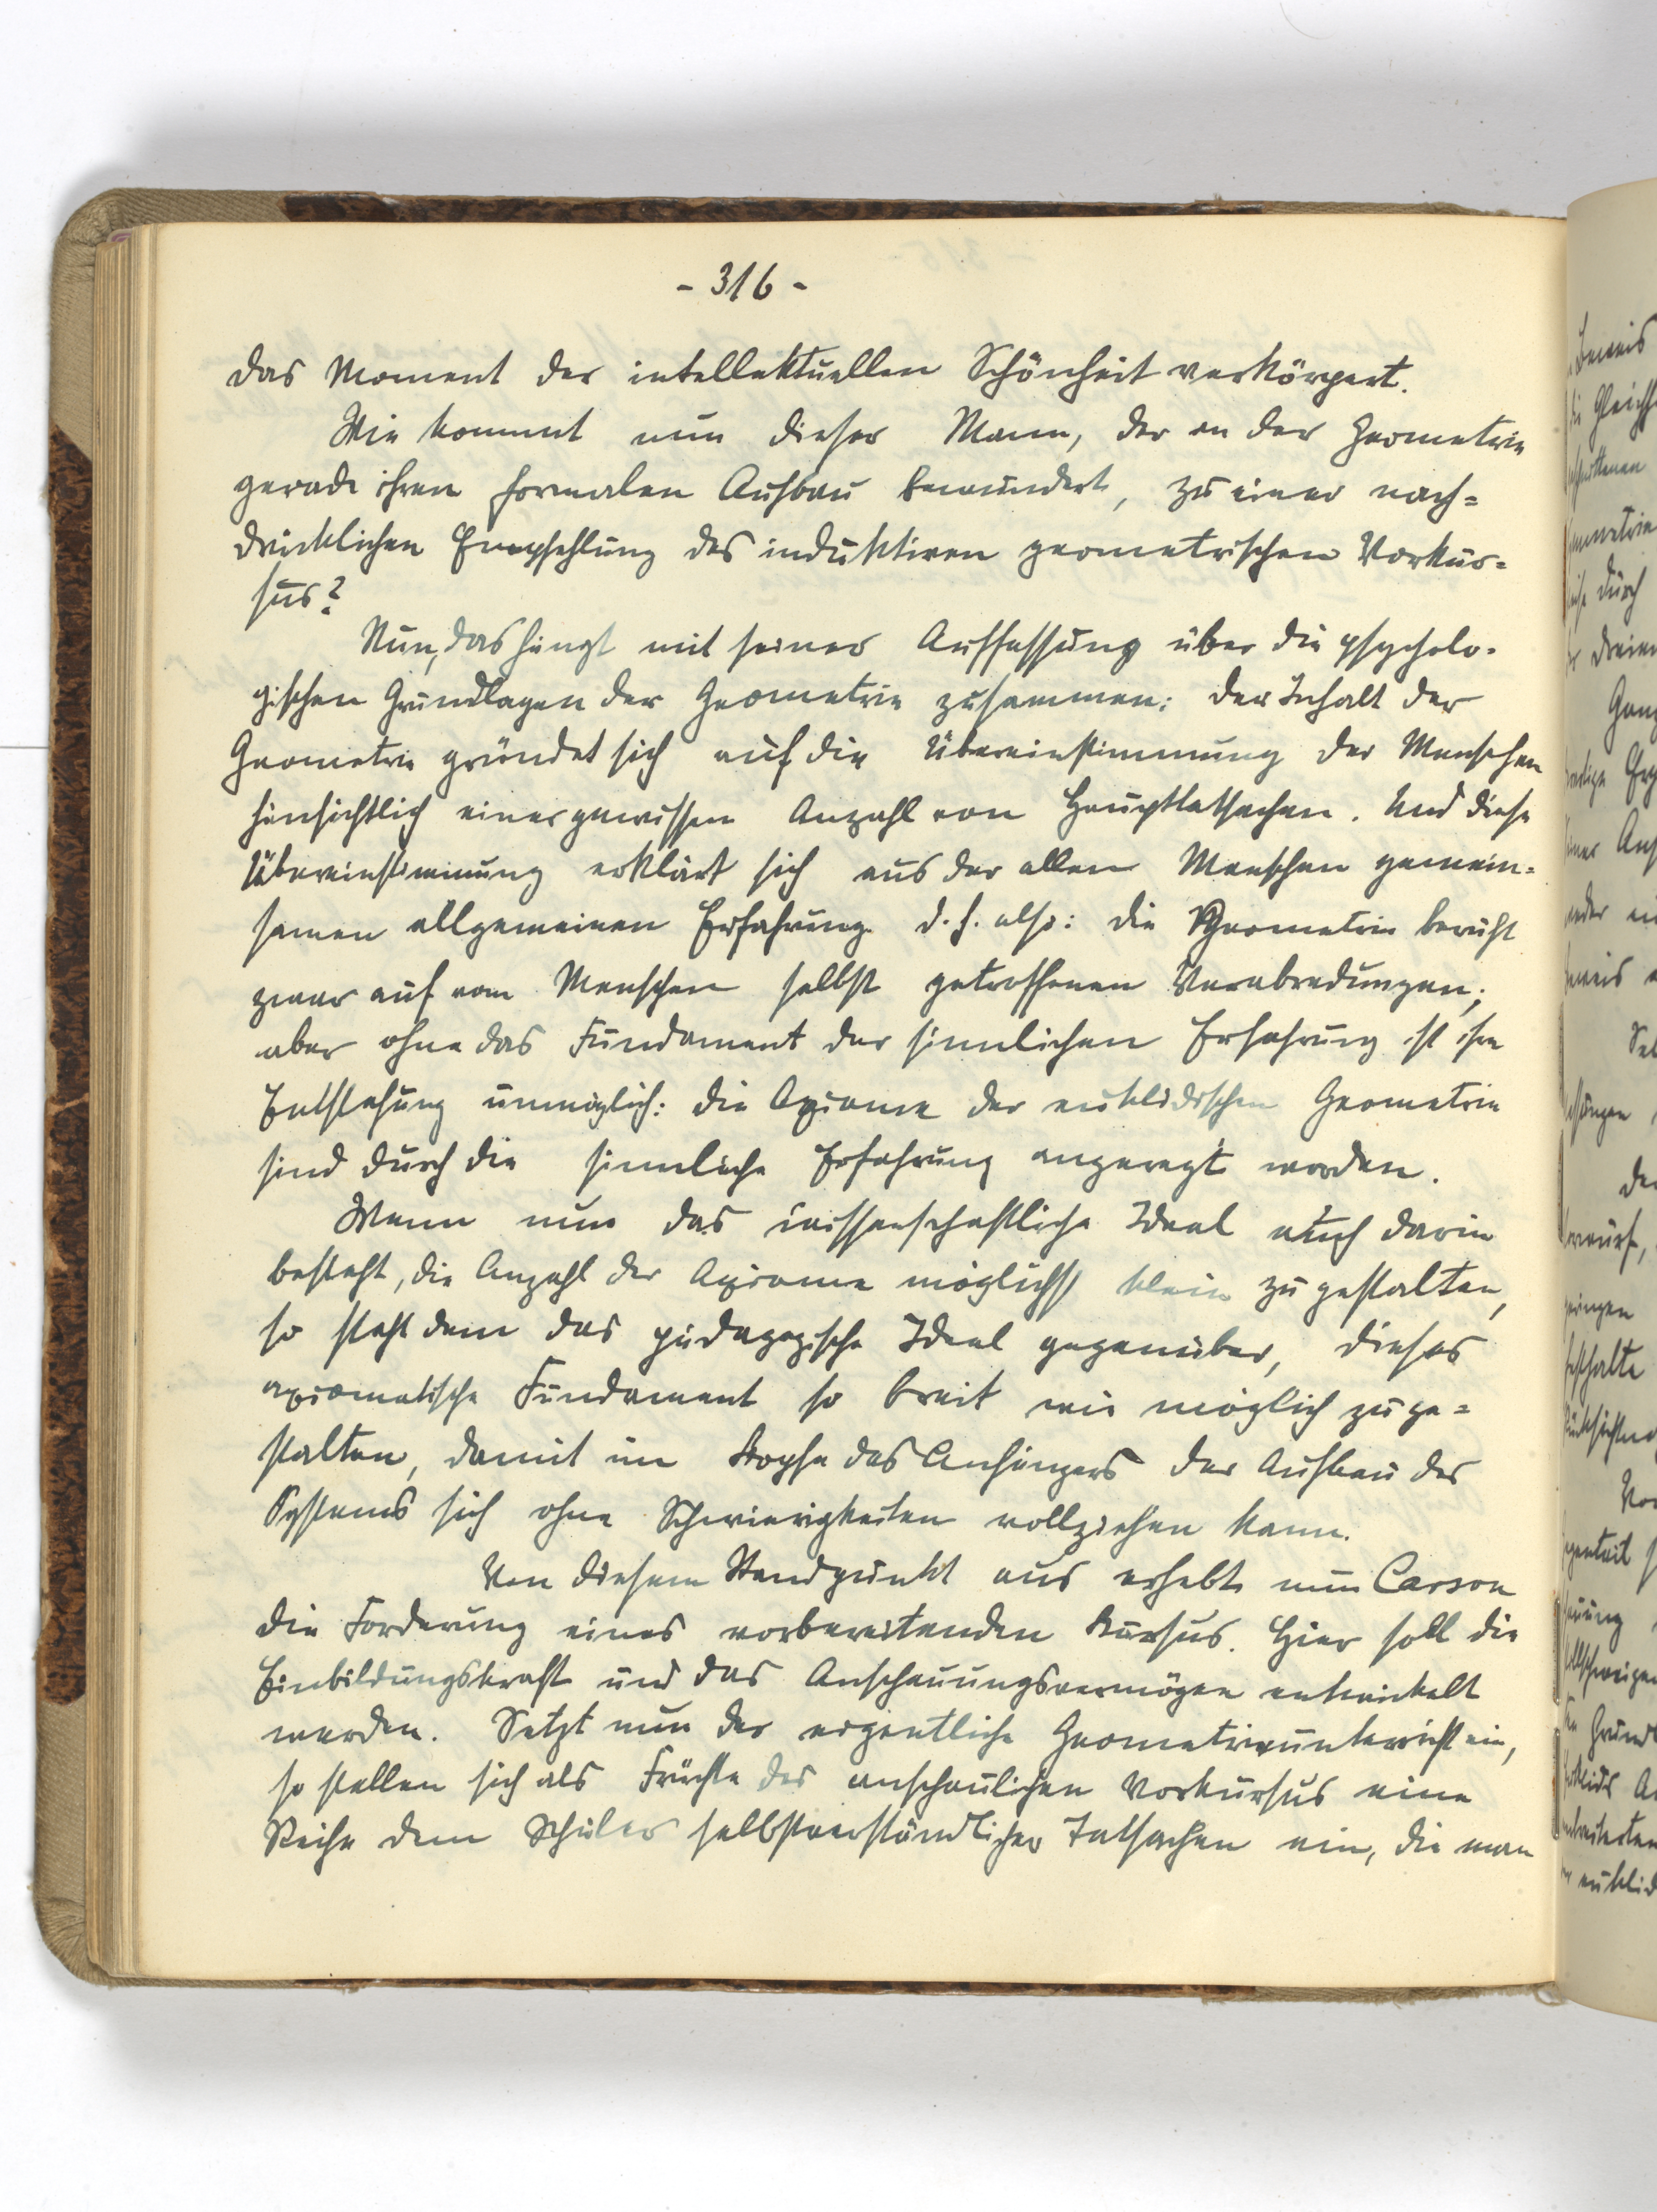 - 316 -
das Moment der intellektuellen Schönheit verkörpert.
Wie kommt nun dieser Mann, der an der Geometrie
gerade ihren formalen Aufbau bewundert, zu einer nach=
drücklichen Empfehlung des induktiven geometrischen Vorkur=
sus?
Nun, das hängt mit seiner Auffassung über die psycholo-
gischen Grundlagen der Geometrie zusammen: der Inhalt der
Geometrie gründet sich auf die Übereinstimmung der Menschen
hinsichtlich einer gewissen Anzahl von Haupttatsachen. Und diese
Übereinstimmung erklärt sich aus der allen Menschen gemein=
samen allgemeinen Erfahrung. d. h. also: die Geometrie beruht
zwar auf vom Menschen selbst getroffenen Verabredungen;
aber ohne das Fundament der sinnlichen Erfahrung ist ihre
Entstehung unmöglich: die Axiome der euklidischen Geometrie
sind durch die sinnliche Erfahrung angeregt worden.
Wenn nun das wissenschaftliche Ideal auch darin
besteht, die Anzahl der Axiome möglichst klein zu gestalten,
so steht dem das pädagogische Ideal gegenüber, dieses
axiomatische Fundament so breit wie möglich zu ge=
stalten, damit im Kopfe des Anfängers der Aufbau des
Systems sich ohne Schwierigkeiten vollziehen kann.
Von diesem Standpunkt aus erhebt nun Carson
die Forderung eines vorbereitenden Kursus. Hier soll die
Einbildungskraft und das Anschauungsvermögen entwickelt
werden. Setzt nun der eigentliche Geometrieunterricht ein,
so stellen sich als Früchte des anschaulichen Vorkursus eine
Reihe dem Schüler selbstverständlicher Tatsachen ein, die man